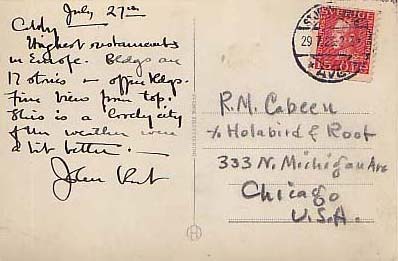 July 27th
Highest restaurants
in Europe. Bldgs are
17 stories - office bldgs.
Fine view from top.
This is a lovely city
if the weather were
a bit better. -
John
R.M. Cabeen
℅ Holabird & Root
333 N. Michigan Ave
Chicago
U.S.A.
SVERIGE
29